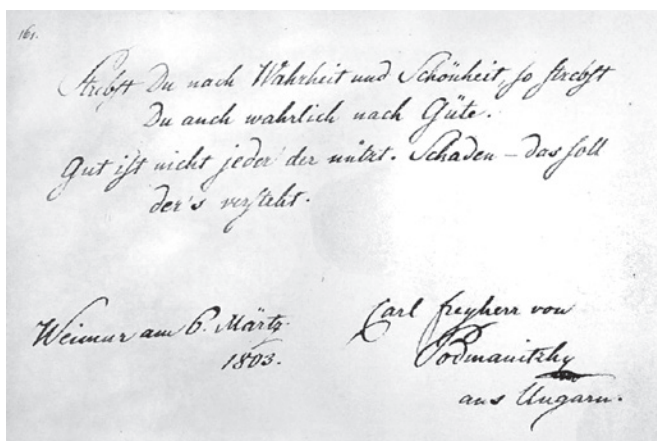 161.
Strebst Du nach Wahrheit und Schönheit, so strebst
Du auch wahrlich nach Güte.
Gut ist nicht jeder der nützt. Schaden – das soll
der's versteht.
Weimar am 6. Märtz
1803.
Carl Freyherr von
Podmanitzky
aus Ungarn.